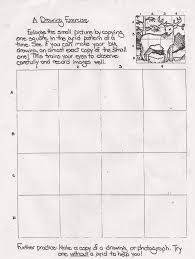 A Drawing Exercise
Enlarge the small picture by copying
one square in the grid pattern at a
time. See if you can make your big
drawing an almost exact copy of the small
one! This trains your eyes to observe
carefully and record images well.
1 2 3 4
A
B
C
D
Further practice: Make a copy of a drawing, or photograph. Try
one without a grid to help you!